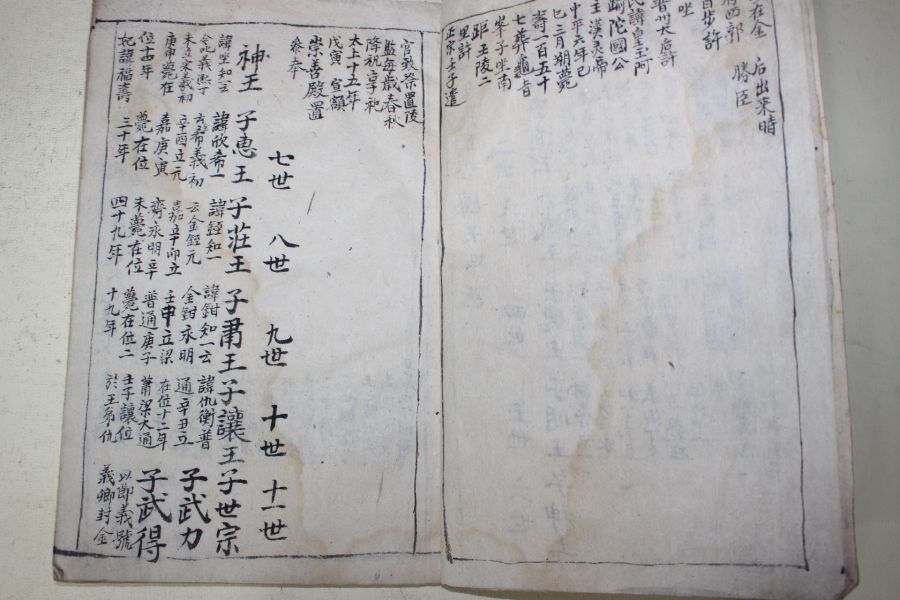 在金 后出来時
府西郭 勝臣
自步許
坐
普州太后許
氏諱皇玉阿
踰陀國公
主漢㚑帝
中平六年己
巳三月朔薨
壽一百五十
七葬龜旨
峯子坐南
距王陵二
里許
正宗壬子遣
官致祭置陵
監每歲春秋
降祝享祀
太上十五年
戊寅宣額
崇善殿置
參奉
七世
八世
九世
十世
十一世
神王
諱坐知一云
金叱義熙丁
未立宋義初
庚申薨在
位十四年
妃諱福壽
子惠王
諱欣希一
云希義初
辛酉立元
嘉庚寅
薨在位
三十年
子莊王
諱銍知一
云金銍元
嘉辛卯立
齊永明辛
未薨在位
四十九年
子肅王
諱鉗知一云
金鉗永明
壬申立梁
普通庚子
薨在位二
十九年
子讓王
諱仇衡普
通辛丑立
在位十二年
蕭梁大通
壬子讓位
於王弟仇
子世宗
子武力
子武得
以即義號
義卿封金